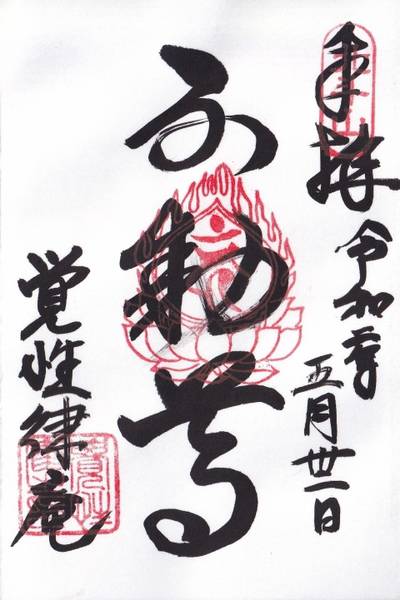 奉拝
令和
五月丗一日
不動尊
覚性律庵